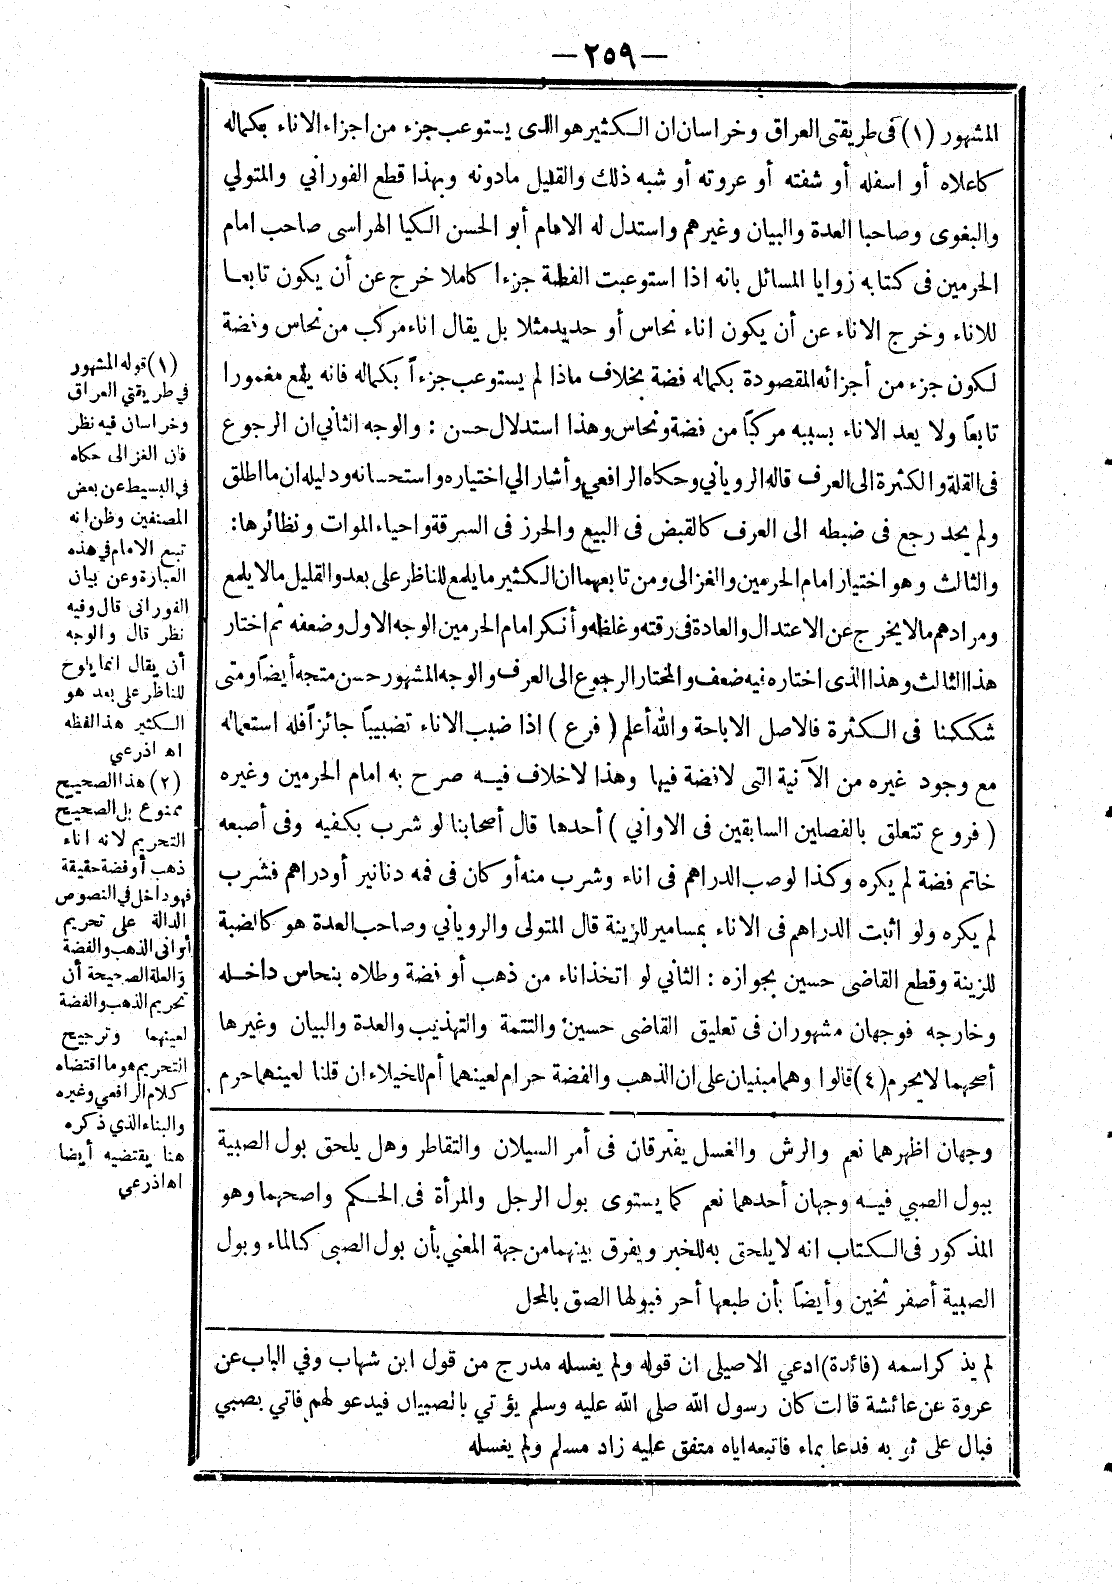 — ٢٥٩ —
المشهور (١) في طريقتى العراق وخراسان ان الكثير هو الذى يستوعب جزء من اجزاء الاناء بكماله
كاعلاه أو اسفله أو شفته أو عروته أو شبه ذلك والقليل مادونه وبهذا قطع الفوراني والمتولي
والبغوى وصاحبا العدة والبيان وغيرهم واستدل له الامام أبو الحسن الكيا الهراسى صاحب امام
الحرمين فى كتابه زوايا المسائل بانه اذا استوعبت الفضة جزءا كاملا خرج عن أن يكون تابعا
للاناء وخرج الاناء عن أن يكون اناء نحاس أو حديد مثلا بل يقال اناء مركب من نحاس وفضة
لكون جزء من أجزائه المقصودة بكماله فضة بخلاف ماذا لم يستوعب جزءاً بكماله فانه يقع مغمورا
تابعاً ولا يعد الاناء بسببه مركباً من فضة ونحاس وهذا استدلال حسن : والوجه الثاني ان الرجوع
فى القلة والكثرة الى العرف قاله الروياني وحكاه الرافعي وأشار الي اختياره واستحسانه ودليله ان ما اطلق
ولم يحد رجع فى ضبطه الى العرف كالقبض فى البيع والحرز فى السرقة واحياء الموات ونظائرها:
والثالث وهو اختيار امام الحرمين والغزالى ومن تابعهما ان الكثير ما يلمع للناظر على بعد والقليل مالا يلمع
ومرادهم مالا يخرج عن الاعتدال والعادة فى رقته وغلظه وأنكر امام الحرمين الوجه الاول وضعفه ثم اختار
هذا الثالث وهذا الذى اختاره فيه ضعف والمختار الرجوع الى العرف والوجه المشهور حسن متجه أيضاً ومتى
شككنا فى الكثرة فالاصل الاباحة والله أعلم ( فرع ) اذا ضبب الاناء تضبيباً جائزاً فله استعماله
مع وجود غيره من الآنية التى لا فضة فيها وهذا لا خلاف فيه صرح به امام الحرمين وغيره
( فروع تتعلق بالفصلين السابقين فى الاواني ) أحدها قال أصحابنا لو شرب بكفيه وفى أصبعه
خاتم فضة لم يكره وكذا لو صب الدراهم فى اناء وشرب منه أو كان فى فمه دنانير أو دراهم فشرب
لم يكره ولو اثبت الدراهم فى الاناء بمسامير للزينة قال المتولى والروياني وصاحب العدة هو كالضبة
للزينة وقطع القاضى حسين بجوازه : الثاني لو اتخذ اناء من ذهب أو فضة وطلاه بنحاس داخله
وخارجه فوجهان مشهوران فى تعليق القاضى حسين والتتمة والتهذيب والعدة والبيان وغيرها
أصحهما لا يحرم (٤) قالوا وهما مبنيان على ان الذهب والفضة حرام لعينهما أم للخيلاء ان قلنا لعينهما حرم
(١) قوله المشهور
في طريقتي العراق
وخراسان فيه نظر
فان الغزالى حكاه
في البسيط عن بعض
المصنفين وظن انه
تبع الامام في هذه
العبارة وعن بيان
الفورانى قال وفيه
نظر قال والوجه
أن يقال انما يلوح
للناظر على بعد هو
الكثير هذا لفظه
اه اذرعي
(٢) هذا الصحيح
ممنوع بل الصحيح
التحريم لانه اناء
ذهب أو فضة حقيقة
فهو داخل في النصوص
الدالة على تحريم
أوانى الذهب والفضة
والعلة الصحيحة أن
تحريم الذهب والفضة
لعينهما وترجيح
التحريم هو ما اقتضاه
كلام الرافعي وغيره
والبناء الذي ذكره
هنا يقتضيه أيضا
اه اذرعي
وجهان اظهرهما نعم والرش والغسل يفترقان فى أمر السيلان والتقاطر وهل يلحق بول الصبية
ببول الصبي فيه وجهان أحدهما نعم كما يستوى بول الرجل والمرأة فى الحكم واصحهما وهو
المذكور فى الكتاب انه لا يلحق به للخبر ويفرق بينهما من جهة المعني بأن بول الصبى كالماء وبول
الصبية أصفر ثخين وأيضاً بأن طبعها أحر فبولها الصق بالمحل
لم يذكر اسمه (فائدة) ادعي الاصيلى ان قوله ولم يغسله مدرج من قول ابن شهاب وفي الباب عن
عروة عن عائشة قالت كان رسول الله صلى الله عليه وسلم يؤتي بالصبيان فيدعو لهم فاتي بصبي
فبال على ثوبه فدعا بماء فاتبعه اياه متفق عليه زاد مسلم ولم يغسله